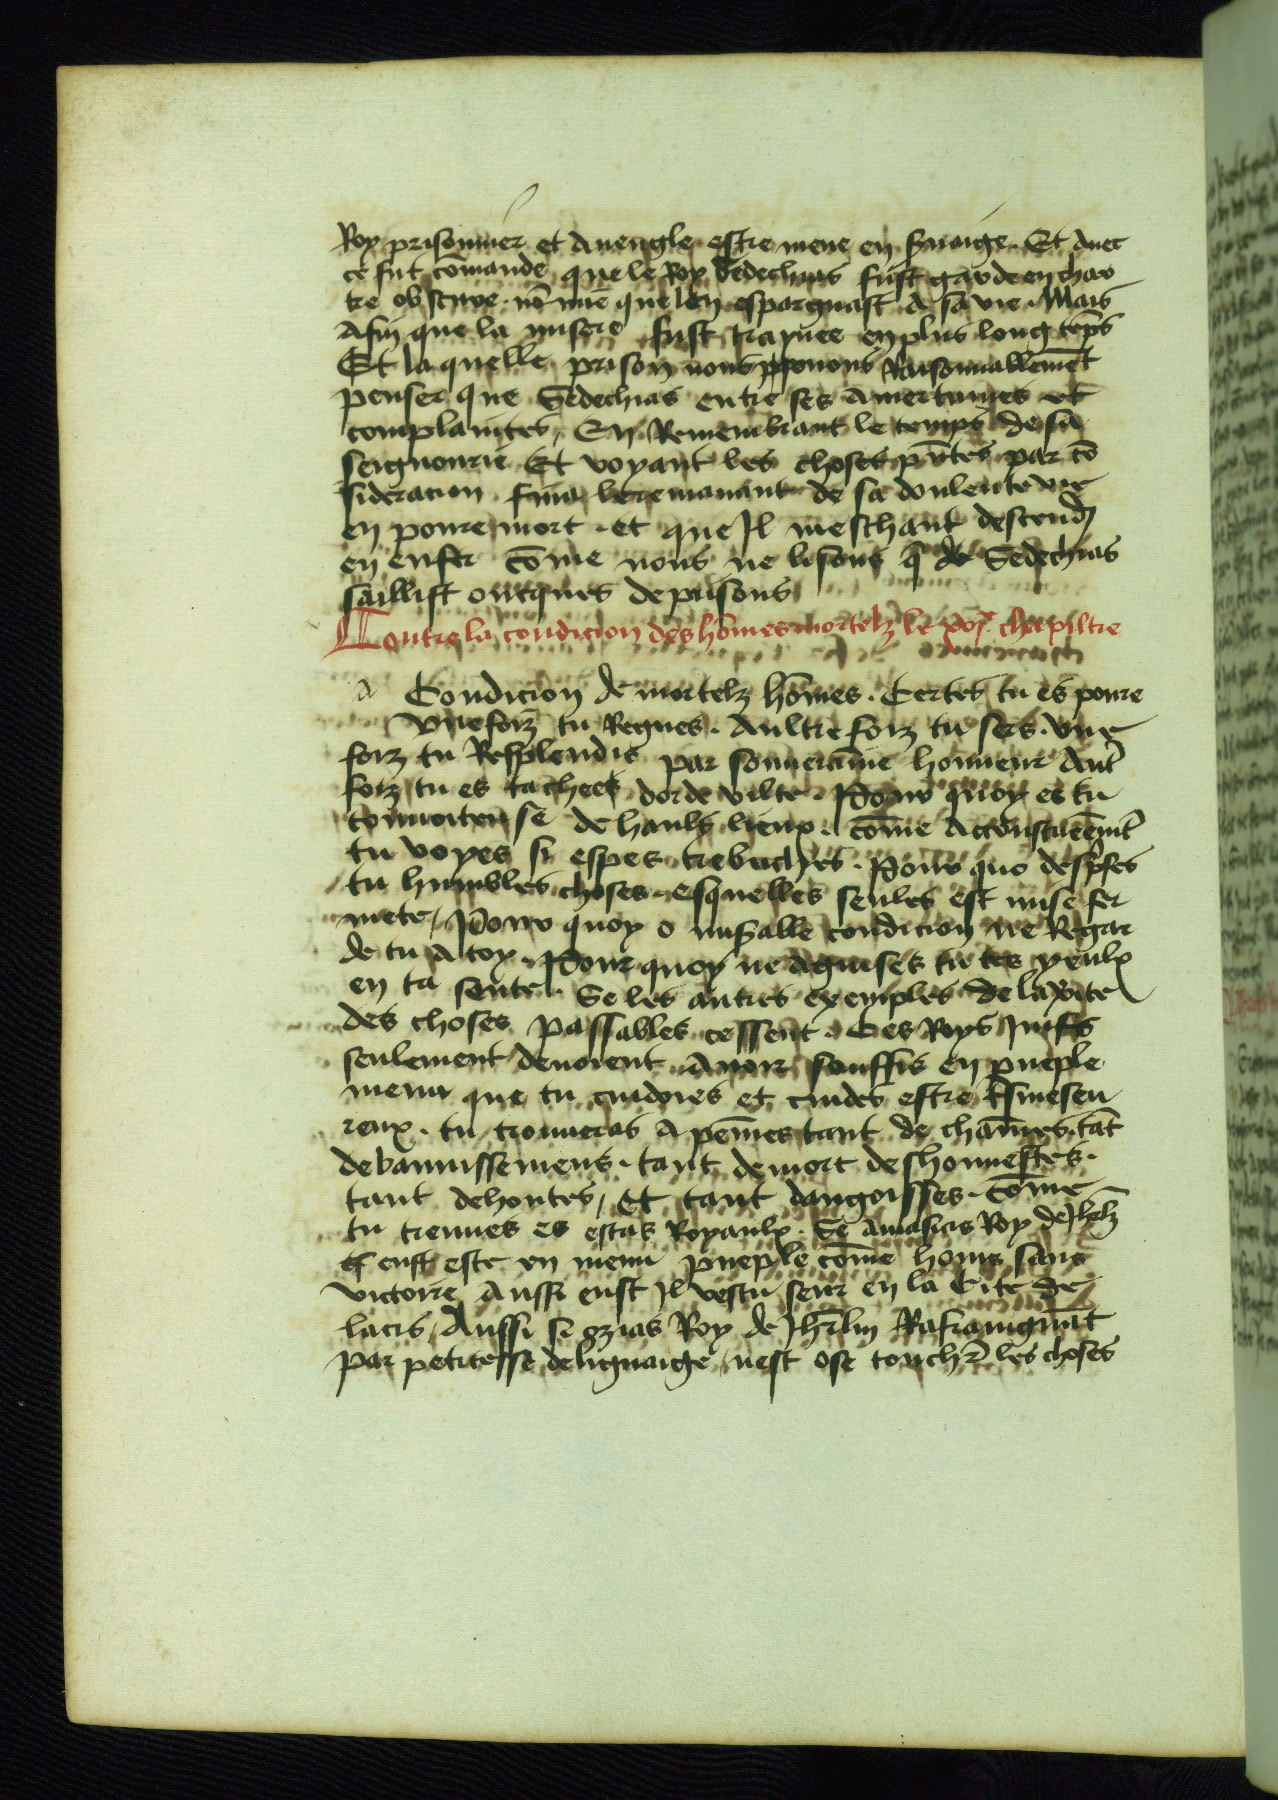 Roy prisonnier et aveugle estre mene en servaige. Et avec
ce fut cōmande que le Roy Sedechias fust garde en char
tre obscure. nō mie que len espargnast A sa vie. Mais
Afin que la misere fust traynee en plus long tēps
Et la quelle prison nous povons Raisonnablemēt
penser que Sedechias entre ses Amertumes et
complaintes, En Remembrant le temps de sa
seignourie Et voyant les choses pn̄tes par cō
sideracion fina le remanant de sa doulente vie
en poure mort. et que Jl meschant descend
en enfer cōme nous ne lisons q̄ de Sedechias
saillist oncques de prisons
Contre la condicion des hōmes mortelz le xvje chapiltre
a Condicion de mortelz hōmes. Certes tu es poure
Vne foiz tu Regnes. Aultre foiz tu sers. vne
foiz tu Resplendis par souveraine honneur Autr̄
foiz tu es tachees dorde vilte. Pour quoy es tu
convoiteuse de haulx lieux. cōme Acoustueemēt
tu voyes si espes trebuches. Pour quo despises
tu humbles choses. esquelles seules est mise fer
mete, Pour quoy o mis̄able condicion ne Regar
de tu A toy. Pour quoy ne aguises tu tes yeulx
en ta sente. Se les autres exemples de la vite
des choses passables cessent. Ces Roys Juifs
seulement devoient Avoir souffis en pueple
menu que tu cuidoies et cuides estre tsmeseu
reux. tu trouveras A peines tant de chaines. tāt
de bannissemens. tant de mort deshonnestes.
tant de hontes, Et tant dangoisses. cōme
tu treuves es estas Royaulx. Se Amasias Roy de Jhrlm̄
eust este vn menu pueple cōme home sans
victoire Aussi eust Jl vescu seur en la Cite de
lacis, Aussi se ozias Roy de Jhrlm̄ Rafraingnāt
par petitesse de lignaige nest ose touchr̄ les choses